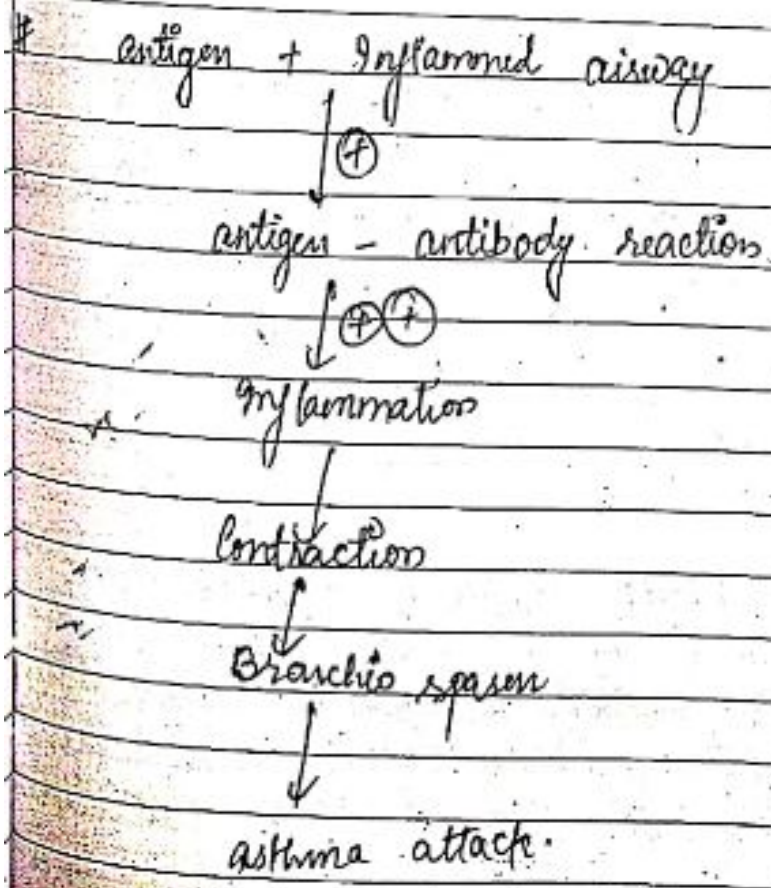 # antigen + Inflammed airway
↓ ⊕
antigen - antibody reaction
↓ ⊕⊕
Inflammation
↓
Contraction
↓
Bronchio spasm
↓
asthma attack.